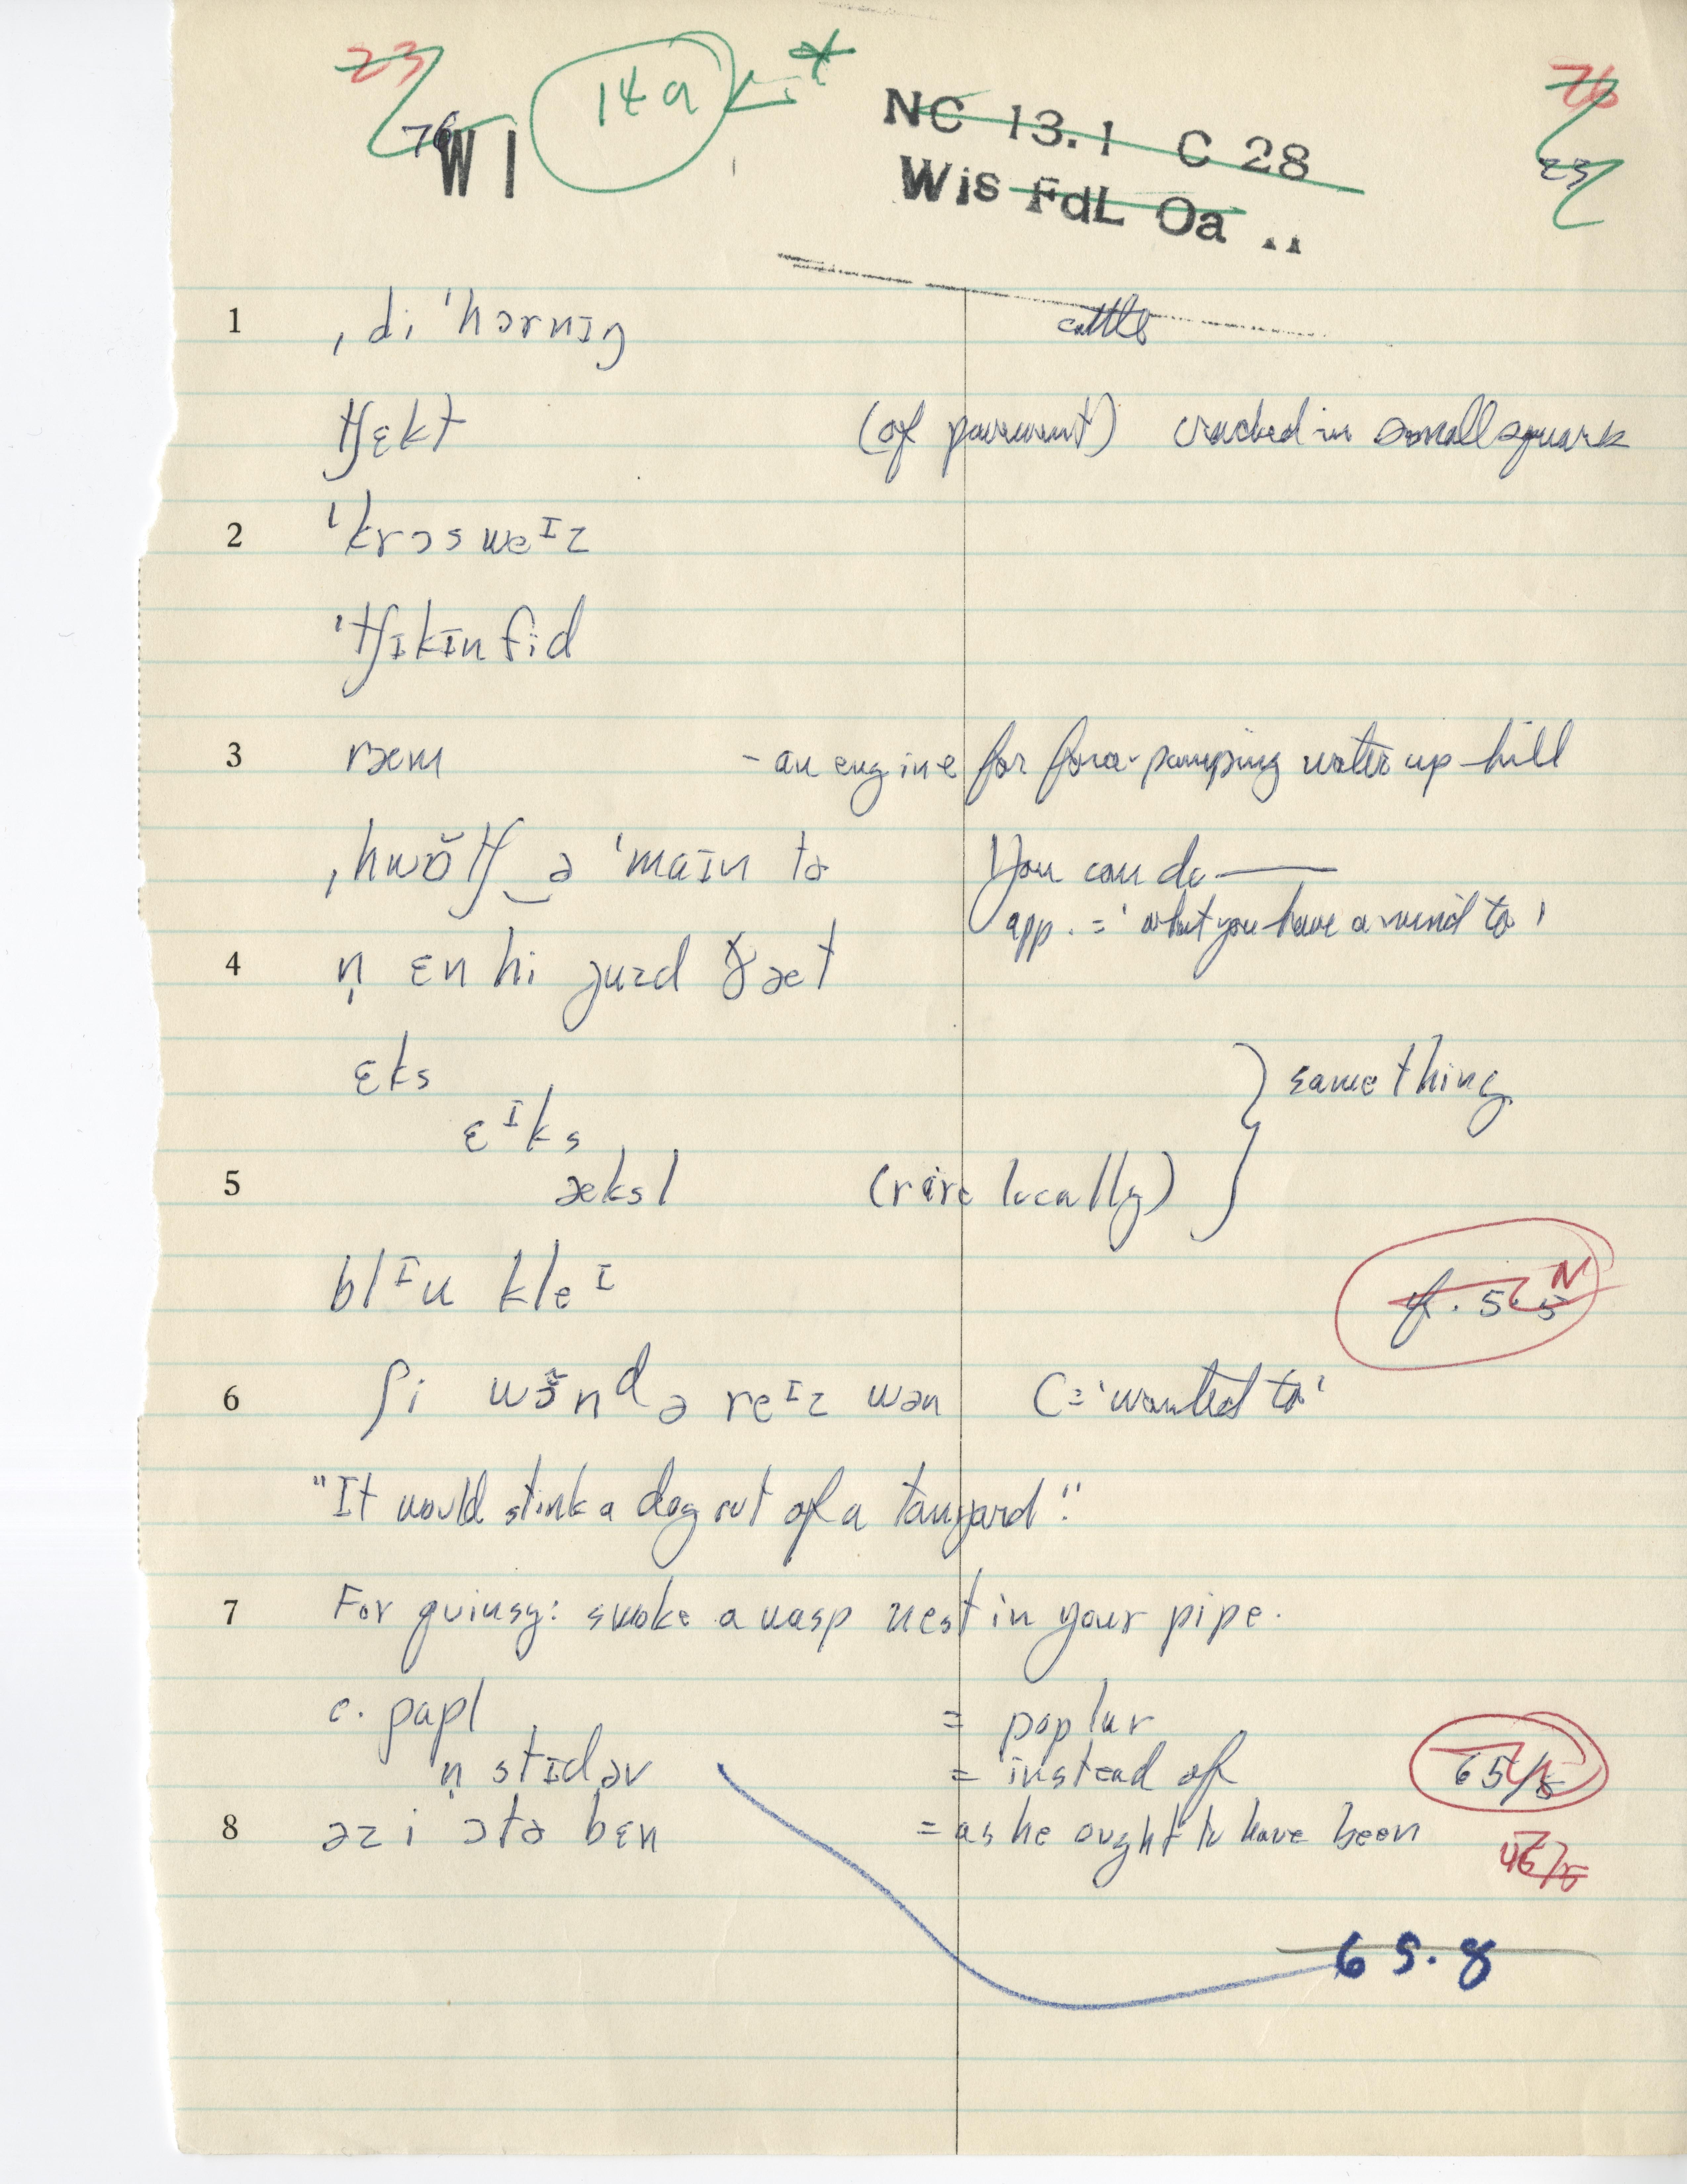 23 14a 76
76 W I NC 13.1 C 28 23
Wis FdL Oa
1 ˌdi ˈhɔrnɪŋ cattle
tʃɛkt (of pavement) cracked in small squares
2 ˈkrɔsweᴵz
ˈtʃɪkɪn fid
3 ræm - an engine for force-pumping water up hill
ˌhwɒ̆tʃ‿ə ˈmaɪn tə You can do —
app. = 'what you have a mind to'
4 n̩ ɛn hi juzd ðæt
ɛks } same thing
ɛᴵks
5 æksl (rare locally)
blᴵu kleᴵ cf. 5.5 N
6 ʃi wɔ̃nᵈə reᴵz wən (= 'wanted to'
"It would stink a dog out of a tanyard".
7 For quinsy: smoke a wasp nest in your pipe.
c. papl = poplar
n̩ stɪdəv = instead of 65/8
8 əzi ɔtə bɛn = as he ought to have been 46/8
65.8